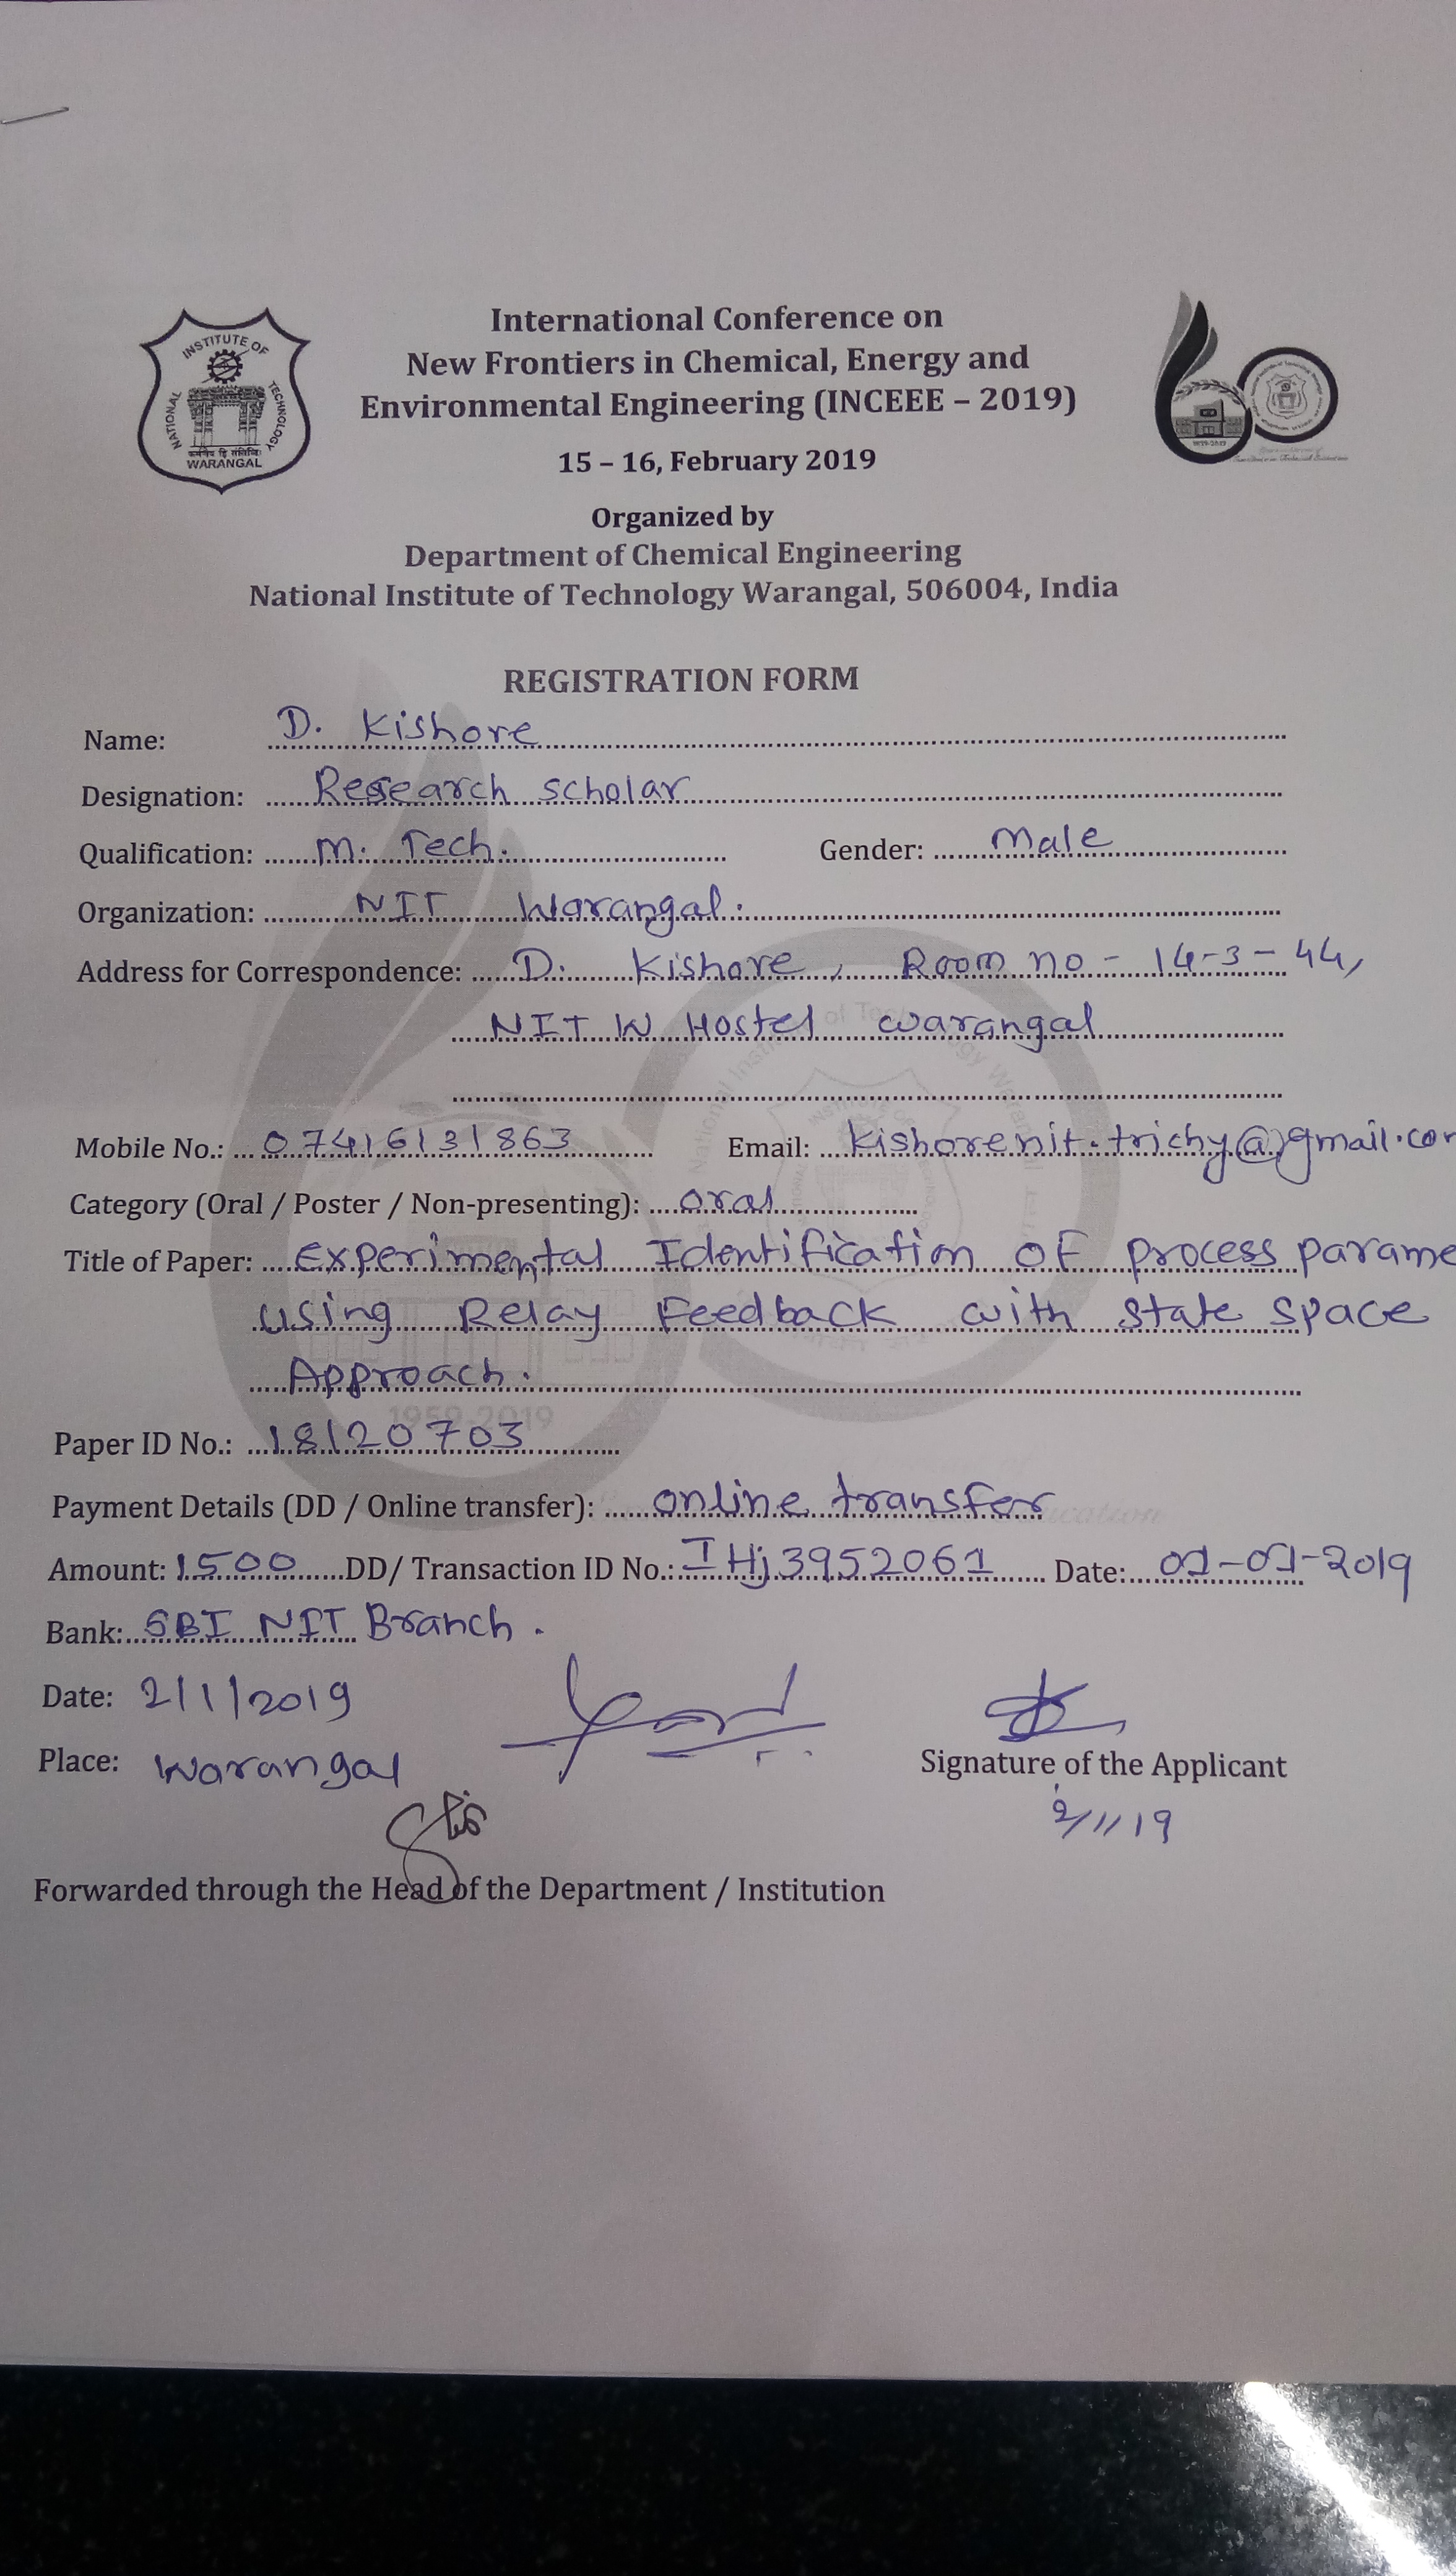 International Conference on
New Frontiers in Chemical, Energy and
Environmental Engineering (INCEEE – 2019)
15 – 16, February 2019
Organized by
Department of Chemical Engineering
National Institute of Technology Warangal, 506004, India
NATIONAL INSTITUTE OF TECHNOLOGY
WARANGAL
REGISTRATION FORM
Name: D. Kishore
Designation: Research scholar
Qualification: M. Tech. Gender: Male
Organization: NIT Warangal.
Address for Correspondence: D. Kishore, Room no - 14-3-44,
NIT W Hostel warangal
Mobile No.: 07416131863 Email: kishorenit.trichy@gmail.cor
Category (Oral / Poster / Non-presenting): oral
Title of Paper: Experimental Identification OF process parame
using Relay Feedback with state space
Approach.
1959-2019
Paper ID No.: 18120703
Payment Details (DD / Online transfer): online transfer
Amount: 1500 DD/ Transaction ID No.: IHj3952061 Date: 01-01-2019
Bank: SBI NIT Branch.
Date: 2/1/2019
Place: Warangal
Signature of the Applicant
2/1/19
Forwarded through the Head of the Department / Institution